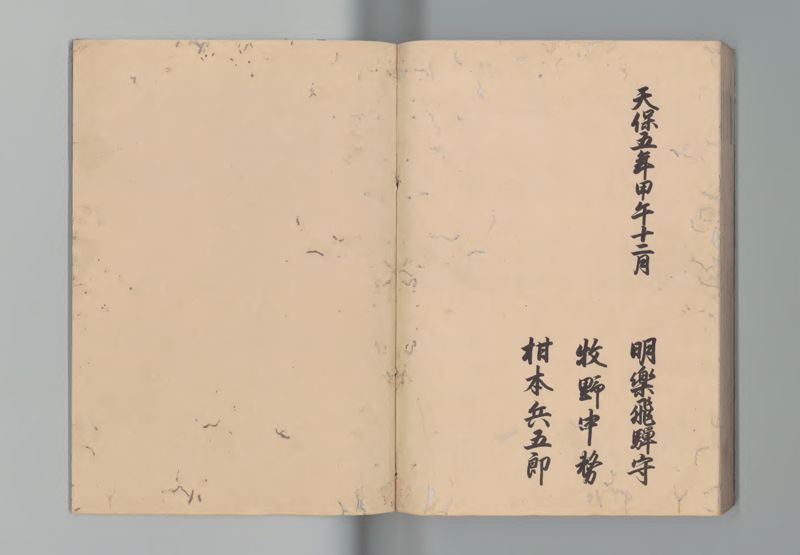 天保五年甲午十二月
明樂飛騨守
牧野中務
柑本兵五郎